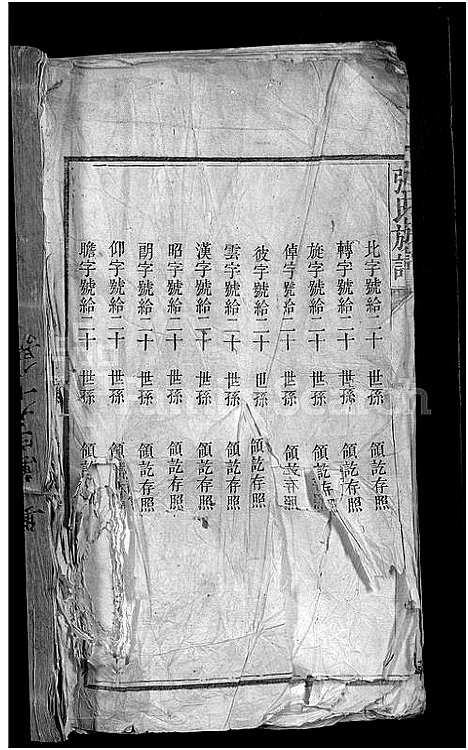 張氏族譜
北字號給二十 世孫 領訖存照
轉字號給二十 世孫 領訖存照
旋字號給二十 世孫 領訖存照
倬字號給二十 世孫 領訖存照
彼字號給二十 世孫 領訖存照
雲字號給二十 世孫 領訖存照
漢字號給二十 世孫 領訖存照
昭字號給二十 世孫 領訖存照
字號給二十 世孫 領訖存照
仰字號給二十 世孫 領
瞻字號給二十 世孫 領